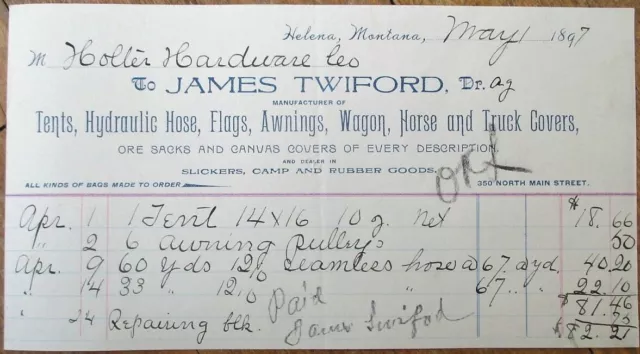 Helena, Montana, May 1 1897
M Holter Hardware Co
To JAMES TWIFORD, Dr.
MANUFACTURER OF
Tents, Hydraulic Hose, Flags, Awnings, Wagon, Horse and Truck Covers,
ORE SACKS AND CANVAS COVERS OF EVERY DESCRIPTION,
AND DEALER IN
SLICKERS, CAMP AND RUBBER GOODS,
ALL KINDS OF BAGS MADE TO ORDER 350 NORTH MAIN STREET.
Apr. 1 1 Tent 14x16 10 oz. net $18.66
" 2 6 Awning Pulleys 50
Apr. 9 60 yds 12/0 Seamless hose @ 67 a yd. 40.20
" 14 33 " 12/0 " " 67 " " 22.10
$81.46
" 24 Repairing blk. 75
$82.21
Paid
James Twiford